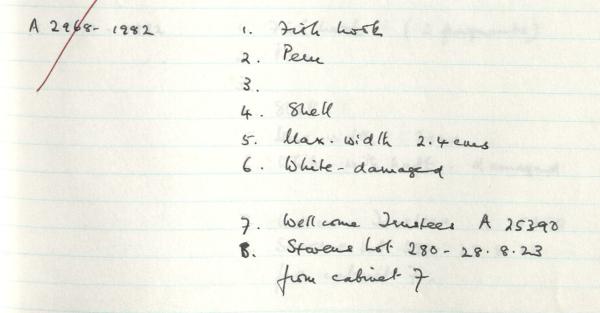 A 2968-1982 1. Fish hook
2. Peru
3.
4. Shell
5. Max. width 2.4 cms
6. White - damaged
7. Wellcome Trustees A 25390
8. Stevens Lot 280 - 28.8.23
from cabinet 7